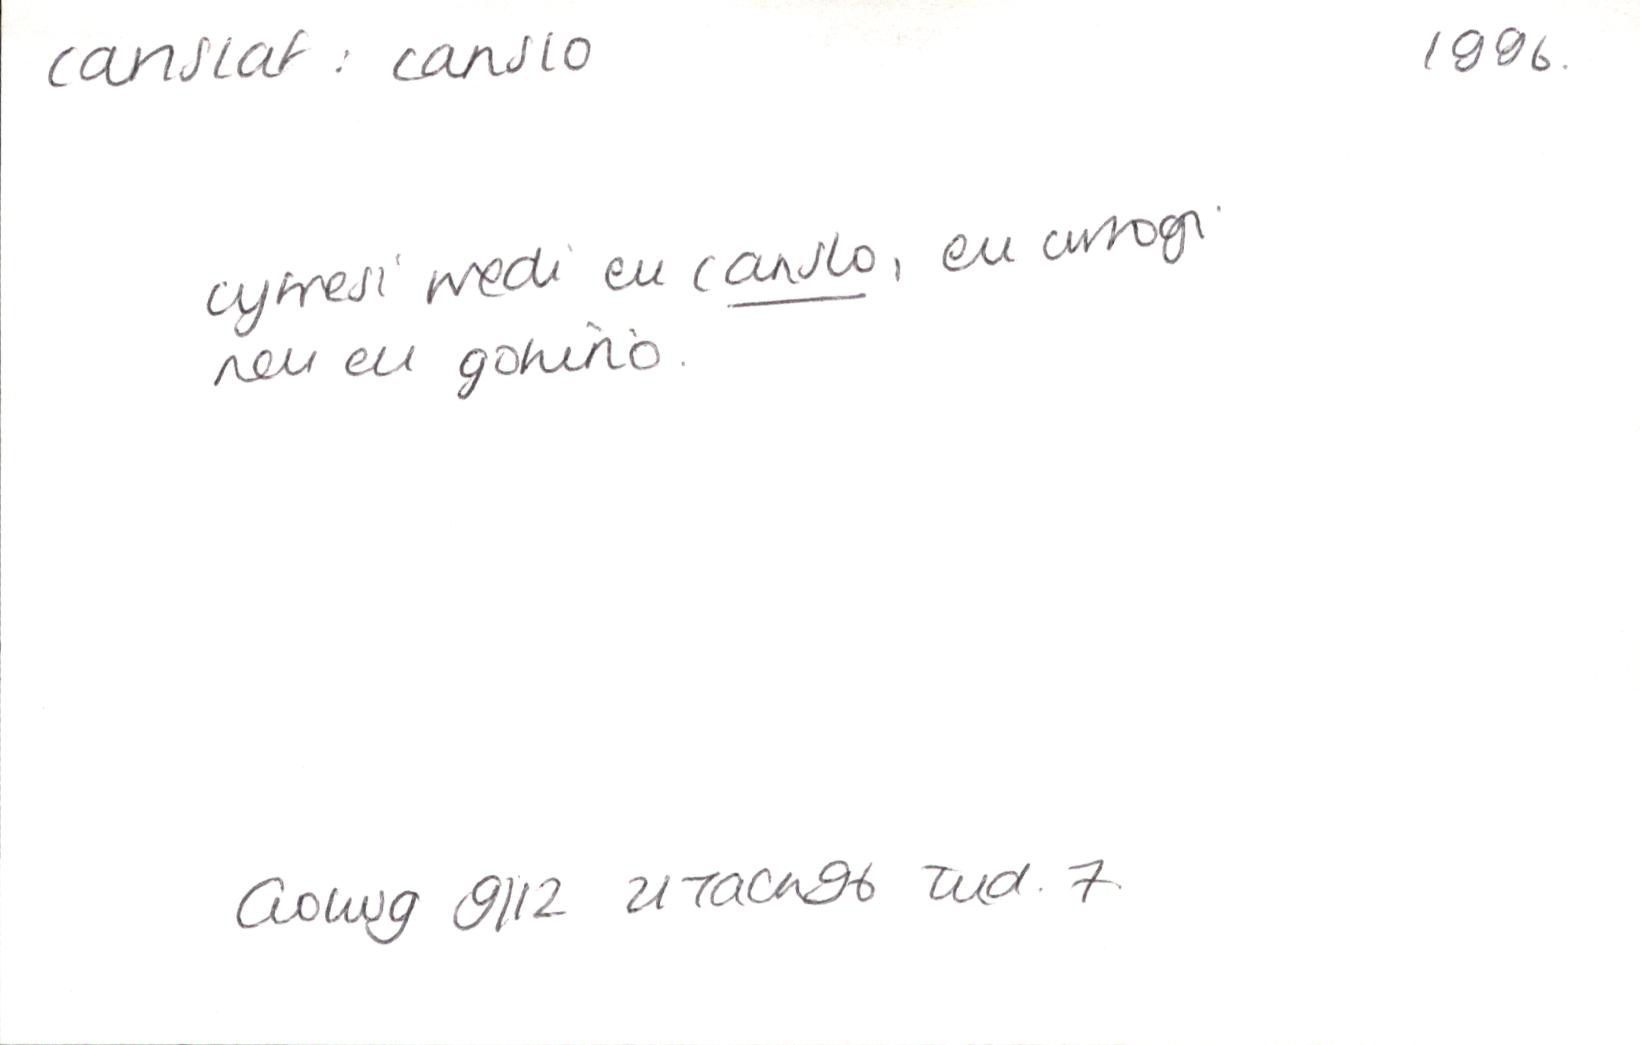 canslaf : canslo 1996.
cyfresi wedi eu canslo, eu cwtogi
neu eu gohirio.
Golwg 9/12 21 Tach 96 Tud. 7.